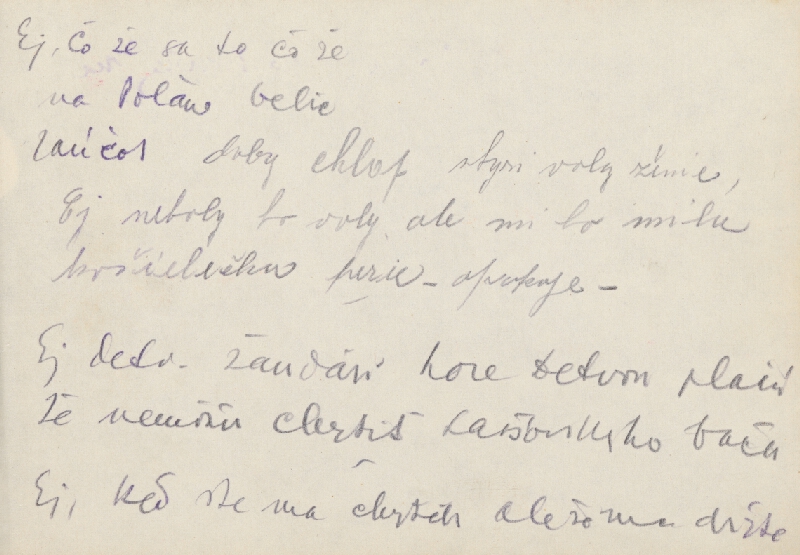 Ej, čo že sa to čo že
na Poľane belie
doby chlop styri voly ženie,
Ej neboly to voly ale mi to milu
košielečku perie - opakuje -
Ej deto. žandári hore Detvou plačú
že nemôžu chytiť baču
Ej, keď ste ma chytili ale ma držte